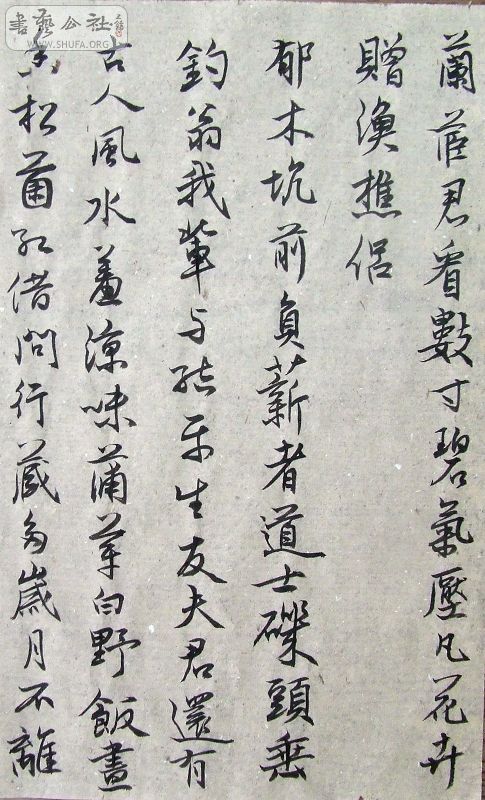 蘭茝君看數寸碧氣壓凡花卉
贈漁樵侶
郁木坑前負薪者道士磯頭垂
釣翁我輩与結平生友夫君還有
古人風水羞涼味蒲芽白野飯晝
香松菌紅借問行藏多歲月不離
書藝公社
WWW.SHUFA.ORG